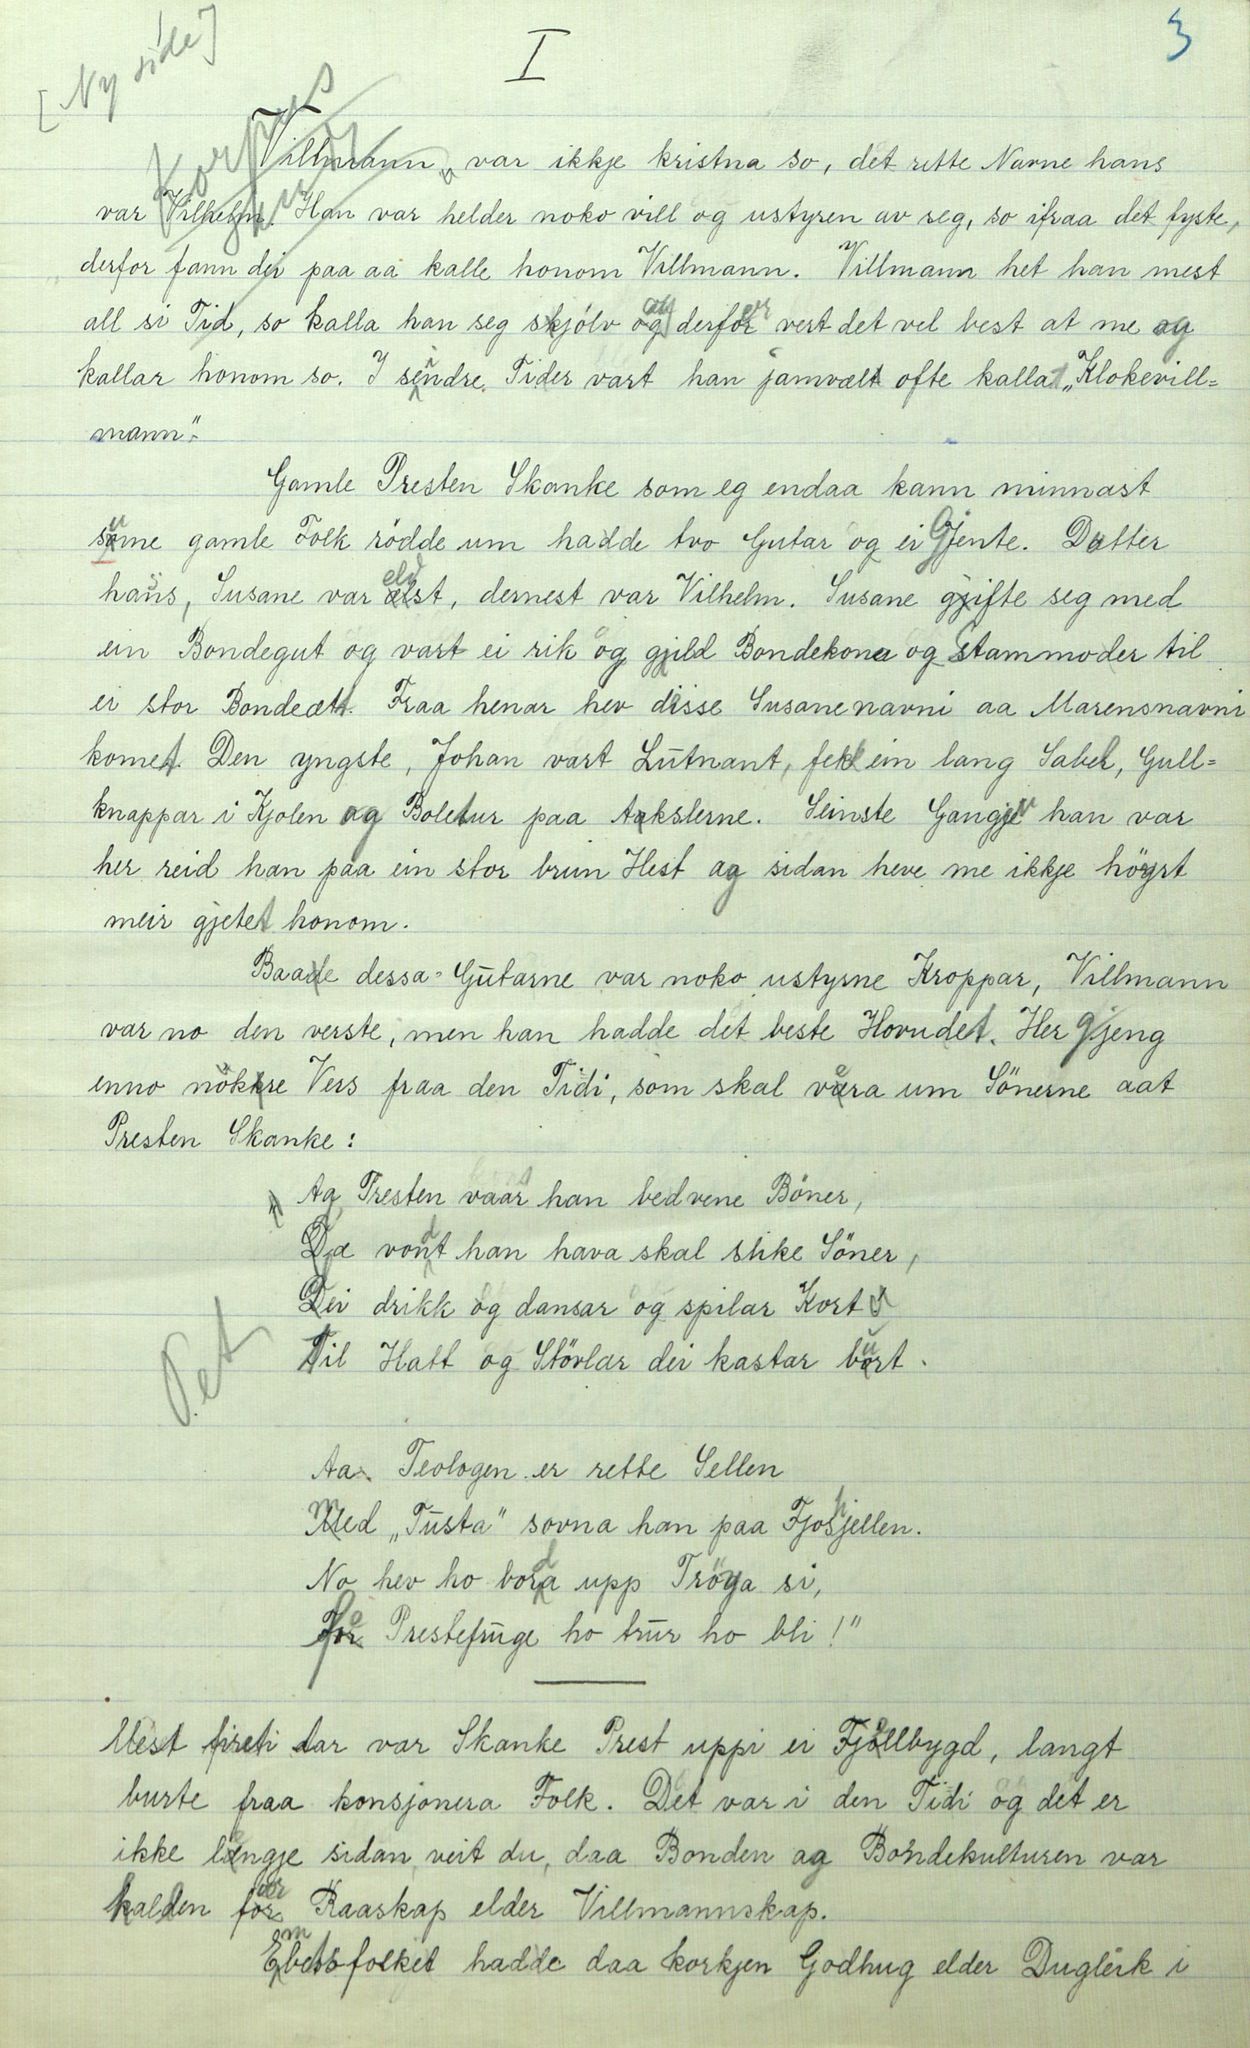 [Ny side]
I
3
Korpus
Villmann var ikkje kristna so, det rette Navne hans
var Vilhelm. Han var helder noko vill og ustyren av seg, so ifraa det fyste,
derfor fann dei paa aa kalle honom Villmann. Villmann het han mest
all si Tid, so kalla han seg skjölv og derfor vert det vel best at me og
kallar honom so. I seindre Tider vart han jamvælt ofte kallat „Klokevill=
mann".
Gamle Presten Skanke som eg endaa kann minnast
sume gamle Folk rödde um hadde tvo Gutar og ei Gjente. Dotter
hans, Susane var eldst, dernest var Vilhelm. Susane gjifte seg med
ein Bondegut og vart ei rik og gjild Bondekona og Stammoder til
ei stor Bondeætt. Fraa henar hev disse Susanenavni aa Marensnavni
komet. Den yngste, Johan vart Lutnant, fekk ein lang Sabel, Gull=
knappar i Kjolen og Boletur paa Akslerne. Seinste Gangje han var
her reid han paa ein stor brun Hest og sidan heve me ikkje höyrt
meir gjetet honom.
Baade dessa Gutarne var noko ustyrne Kroppar, Villmann
var no den verste, men han hadde det beste Hovudet. Her gjeng
enno nökre Vers fraa den Tidi, som skal væra um Sönerne aat
Presten Skanke:
„Aa Presten vaar han bed vene Böner,
Dæ vondt han hava skal slike Söner,
Dei drikk og dansar og spilar Kort
Til Hatt og Stövlar dei kastar burt.
Pet
Aa Teologen er rette Sellen
Med „Tusta" sovna han paa Fjoshjellen.
No hev ho bora upp Tröya si,
for Prestefruge ho trur ho bli!"
Mest fireti Aar var Skanke Prest uppi ei Fjellbygd, langt
burte fraa konsjonera Folk. Det var i den Tidi og det er
ikke lengje sidan veit du, daa Bonden og Bondekulturen var
halden for Raaskap elder Villmannskap.
Embetsfolket hadde daa korkjen Godhug elder Duglêik i